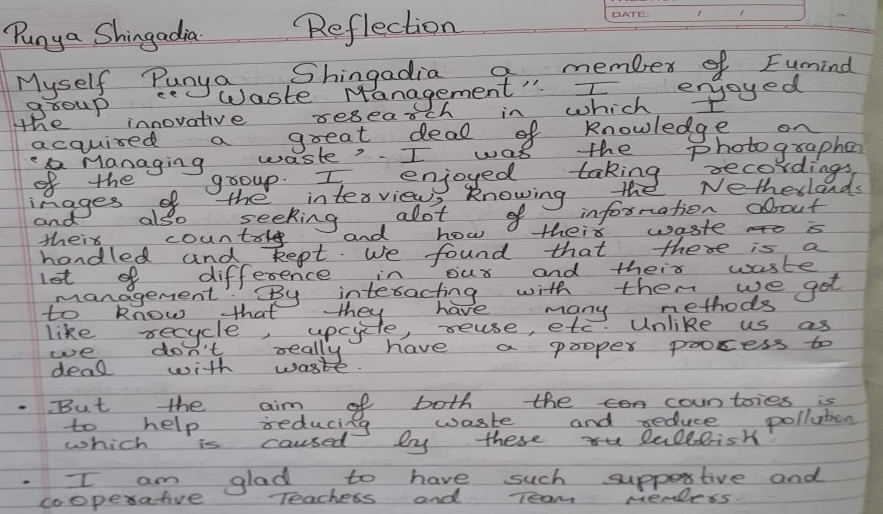 DATE: / /
Punya Shingadia. Reflection
Myself Punya Shingadia a member of Eumind
group "Waste Management". I enjoyed
the innovative research in which I
acquired a great deal of knowledge on
"Managing waste". I was the photographer
of the group. I enjoyed taking recordings,
images of the interview, knowing the Netherlands
and also seeking alot of information about
their country and how their waste is
handled and kept. We found that there is a
lot of difference in our and their waste
management. By interacting with them we got
to know that they have many methods
like recycle, upcycle, reuse, etc. Unlike us as
we don't really have a proper process to
deal with waste.
• But the aim of both the countries is
to help reducing waste and reduce pollution
which is caused by these
• I am glad to have such supportive and
cooperative Teachers and Team Members.